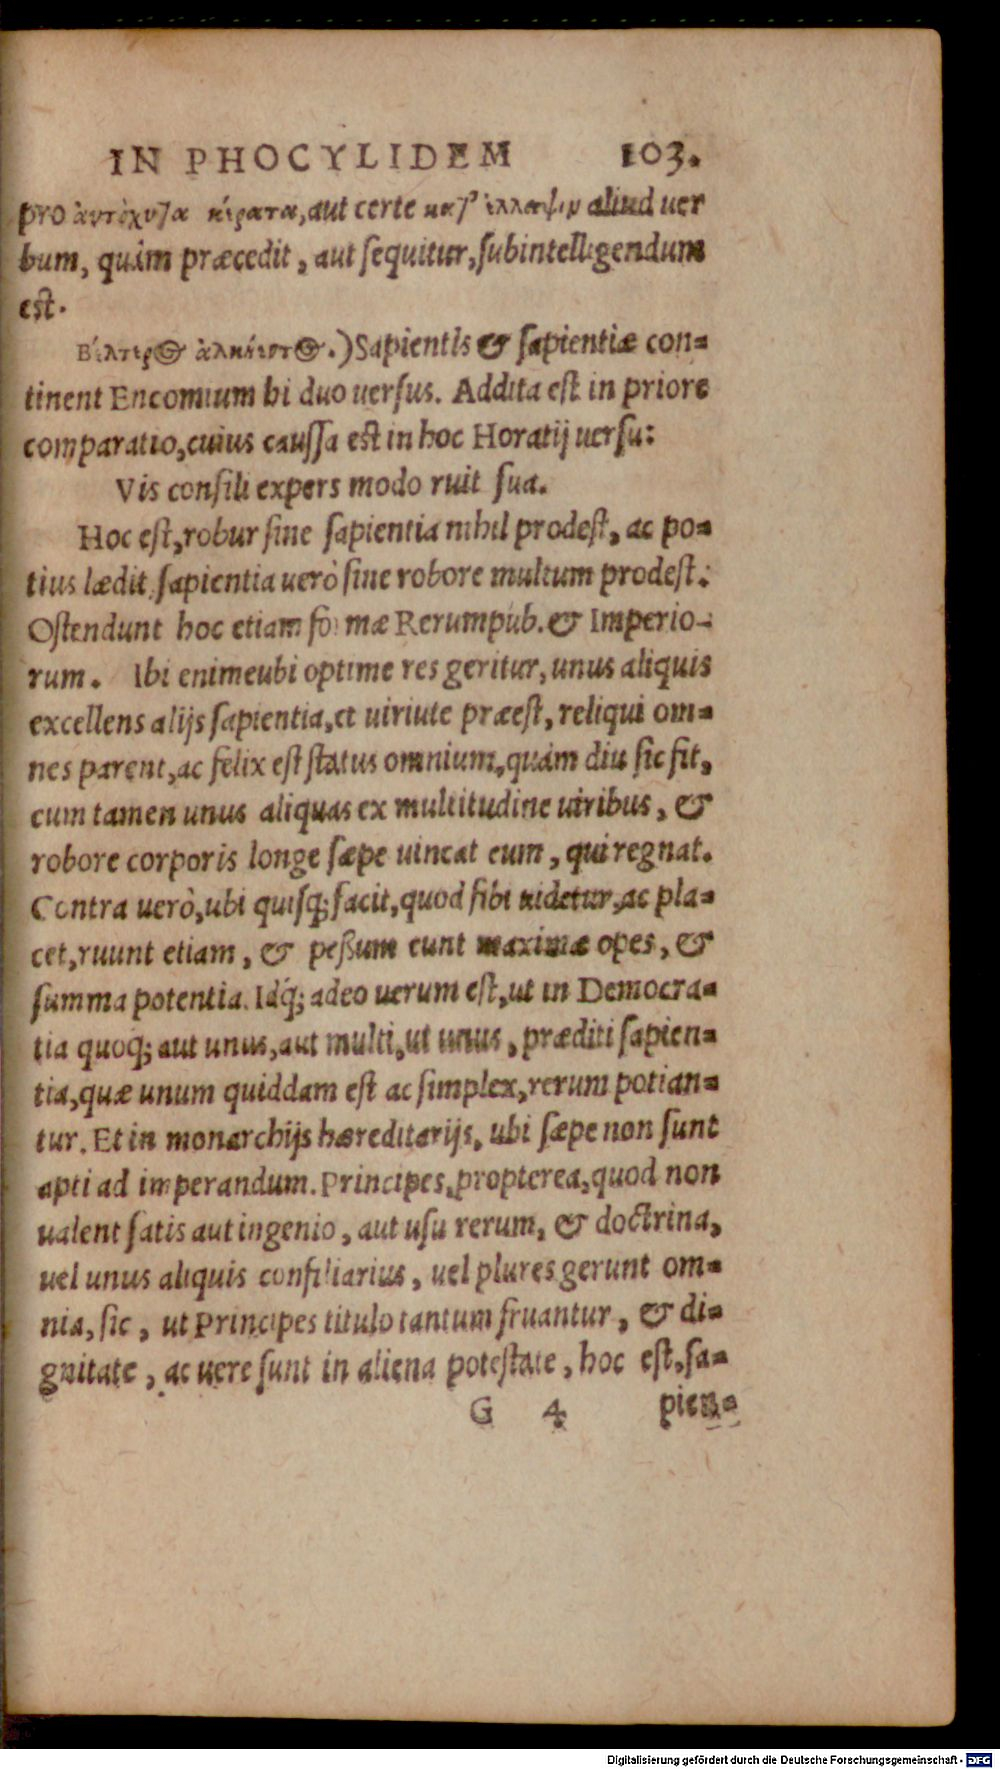 IN PHOCYLIDEM 103.
pro ἀυτόχυτα κέρατα, aut certe κατ' ἔλλειψιν aliud uer
bum, quàm præcedit, aut sequitur, subintelligendum
est.
Βέλτερος ἀλκήεντος.) Sapientis & sapientiæ con=
tinent Encomium hi duo uersus. Addita est in priore
comparatio, cuius caussa est in hoc Horatij uersu:
Vis consili expers modo ruit sua.
Hoc est, robur sine sapientia nihil prodest, ac po=
tius lædit, sapientia uerò sine robore multum prodest.
Ostendunt hoc etiam formæ Rerumpub. & Imperio-
rum. Ibi enim ubi optime res geritur, unus aliquis
excellens alijs sapientia, et uirtute præest, reliqui om=
nes parent, ac felix est status omnium, quàm diu sic fit,
cum tamen unus aliquas ex multitudine uiribus, &
robore corporis longe sæpe uincat eum, qui regnat.
Contra uerò, ubi quisq; facit, quod sibi uidetur, ac pla=
cet, ruunt etiam, & peßum eunt maximæ opes, &
summa potentia. Idq́; adeo uerum est, ut in Democra=
tia quoq; aut unus, aut multi, ut unus, præditi sapien=
tia, quæ unum quiddam est ac simplex, rerum potian=
tur. Et in monarchijs hæreditarijs, ubi sæpe non sunt
apti ad imperandum. Principes, propterea, quod non
ualent satis aut ingenio, aut usu rerum, & doctrina,
uel unus aliquis consiliarius, uel plures gerunt om=
nia, sic, ut Principes titulo tantum fruantur, & di=
gnitate, ac uere sunt in aliena potestate, hoc est, sa=
G 4 pien=
Digitalisierung gefördert durch die Deutsche Forschungsgemeinschaft - DFG